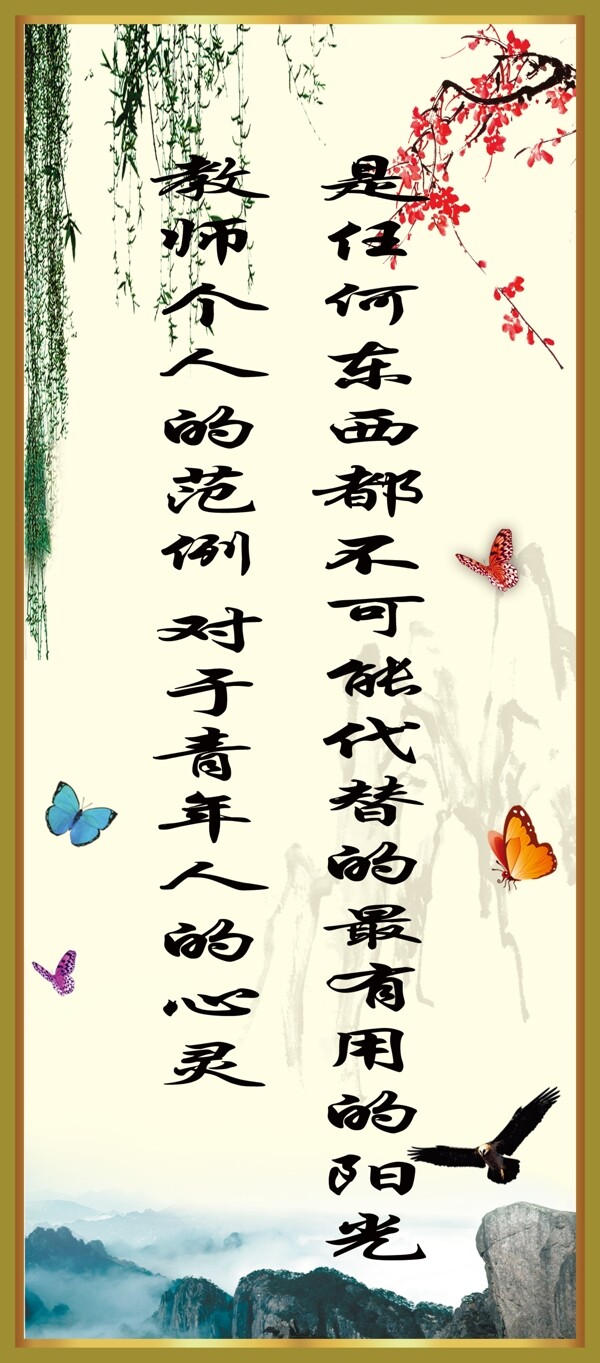 教师个人的范例 对于青年人的心灵
是任何东西都不可能代替的最有用的阳光